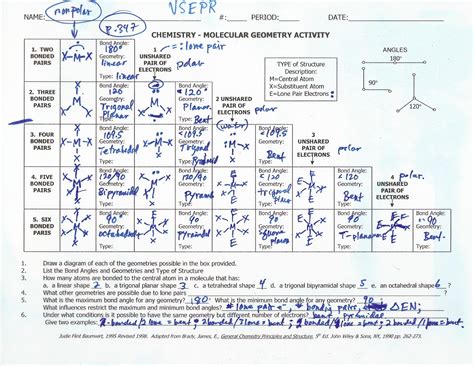 nonpolar
P.347
VSEPR
NAME: #: PERIOD: DATE:
CHEMISTRY - MOLECULAR GEOMETRY ACTIVITY
: = lone pair
polar
1. TWO BONDED PAIRS
X-M-X
Bond Angle: 180°
Geometry: linear
Type: linear
1 UNSHARED PAIR OF ELECTRONS
TYPE of Structure
Description:
M=Central Atom
X=Substituent Atom
E=Lone Pair Electrons
ANGLES
180°
90°
120°
2. THREE BONDED PAIRS
Bond Angle: 120
Geometry: Trigonal Planar
Type:
Bond Angle: <120
Geometry:
Type: Bent
2 UNSHARED PAIR OF ELECTRONS
polar
3. FOUR BONDED PAIRS
Bond Angle: 109.5
Geometry: Tetrahedral
Type:
Bond Angle: <109.5
Geometry: Trigonal Pyramid
Type:
Bond Angle: <109.5
Geometry: Bent
Type:
3 UNSHARED PAIR OF ELECTRONS
polar
4. FIVE BONDED PAIRS
Bond Angle: 120/90
Geometry: Bipyramidal
Type:
Bond Angle: 120/90
Geometry: Pyramid
Type:
Bond Angle: <120
Geometry: trigonal planar
Type:
4 UNSHARED PAIR OF ELECTRONS
polar.
Bond Angle: <120
Geometry: Bent
Type:
5. SIX BONDED PARIS
Bond Angle: 90
Geometry: octahedral
Type:
Bond Angle: 90
Geometry: Pyramid
Type:
Bond Angle: 90
Geometry: planar
Type:
Bond Angle: 90
Geometry: T-planar
Type:
Bond Angle: <90
Geometry: Bent
Type:
1. Draw a diagram of each of the geometries possible in the box provided.
2. List the Bond Angles and Geometries and Type of Structure
3. How many atoms are bonded to the central atom in a molecule that has:
a. a linear shape 2 b. a trigonal planar shape 3 c. a tetrahedral shape 4 d. a trigonal bipyramidal shape 5 e. an octahedral shape 6 ?
4. What other geometries are possible due to lone pairs
5. What is the maximum bond angle for any geometry? 180 What is the minimum bond angle for any geometry? 90
What influences restrict the maximum and minimum bond angles? # lone pair e-, # bonding pairs, ΔEN;
6. Under what condition(s) is it possible to have the same geometry but different number of electrons? bent
Give two examples: 2-bonded/2 lone = bent; 2 bonded/1 lone = bent;
Judie Flint Baumwirt, 1995 Revised 1998. Adapted from Brady, James, E., General Chemistry Principles and Structure, 5th Ed. John Wiley & Sons, NY, 1990 pp. 262-273.